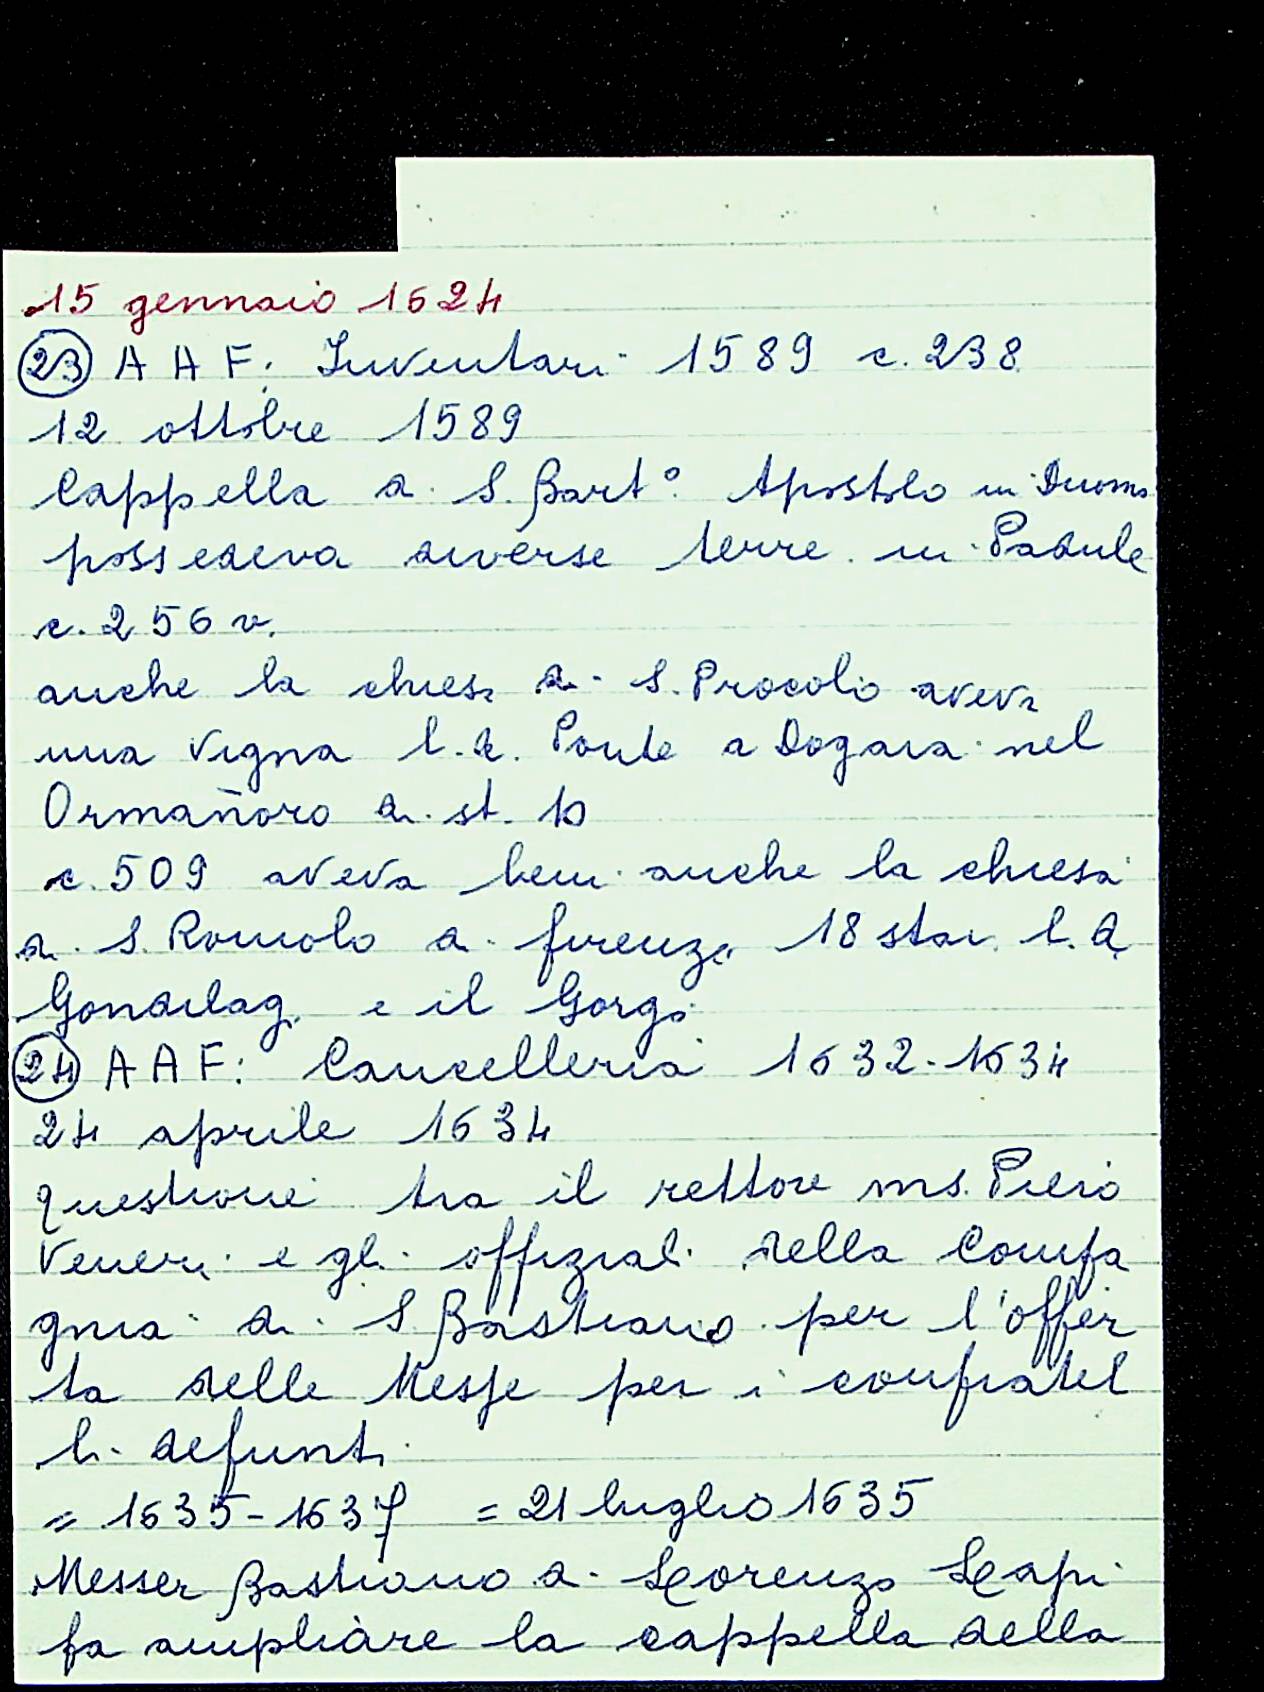 15 gennaio 1624
23 A A F: Inventari 1589 c. 238
12 ottobre 1589
Cappella di S. Bart° Apostolo in Duomo
possedeva diverse terre in Padule
c. 256 v.
anche la chiesa di S. Procolo aveva
una vigna l.d. Ponte a Dogaia nel
Ormañoro di st. 10
c. 509 aveva beni anche la chiesa
di S. Romolo di firenze 18 stai l.d.
Gondilag. e il Gorgo
24 A A F: Cancelleria 1632-1634
24 aprile 1634
questione tra il rettore ms. Piero
Veneri e gli offiziali della Compa
gnia di S. Bastiano per l'offer
ta delle Messe per i confratel
li defunti
= 1635-1637 = 21 luglio 1635
Messer Bastiano di Lorenzo Lapi
fa ampliare la cappella della